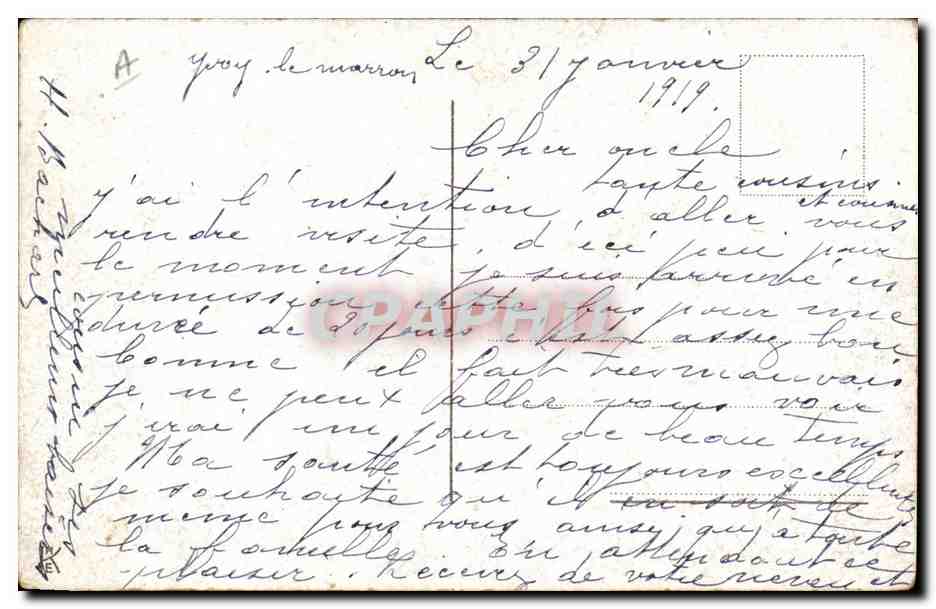 A
Yvoy le marron Le 31 Janvier
1919.
Cher oncle
tante cousins
et cousines
J'ai l'intention d aller vous
rendre visite, d'ici peu pour
le moment je suis arrivé en
permission cette fois pour une
durée de 20 jours c'est assez bon
Comme il fait tres mauvais
je ne peux aller vous voir
j'irai un jour de beau temps
Ma santé est toujours excellente
je souhaite qu'il en soit de
meme pour vous ainsi qu'a toute
la famille. En attendant ce
plaisir. Recevez de votre neveu et
cousin Les
meilleurs baisers
H.
CPAPHIL